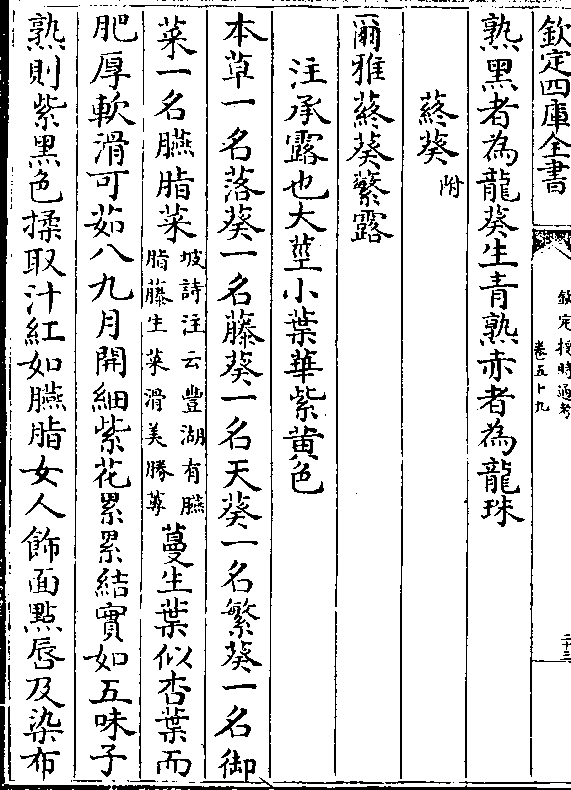 欽定四庫全書
欽定授時通考
卷五十九
二十三
熟黑者為龍葵生青熟赤者為龍珠
蔠葵附
爾雅蔠葵蘩露
注承露也大莖小葉華紫黄色
本草一名落葵一名藤葵一名天葵一名繁葵一名御
菜一名臙脂菜坡詩注云豐湖有臙
脂藤生菜滑美勝蓴蔓生葉似杏葉而
肥厚軟滑可茹八九月開細紫花累累結實如五味子
熟則紫黑色揉取汁紅如臙脂女人飾面點唇及染布